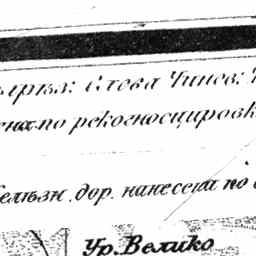 Слева Чинов:
по рекогносцировк
елѣзн. дор. нанесена по
Ур. Велико